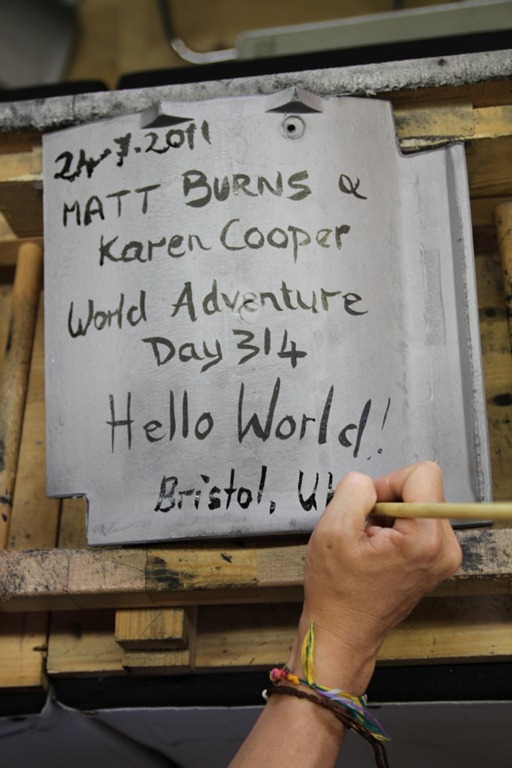 24-7-2011
MATT BURNS &
Karen Cooper
World Adventure
Day 314
Hello World!
Bristol, UK